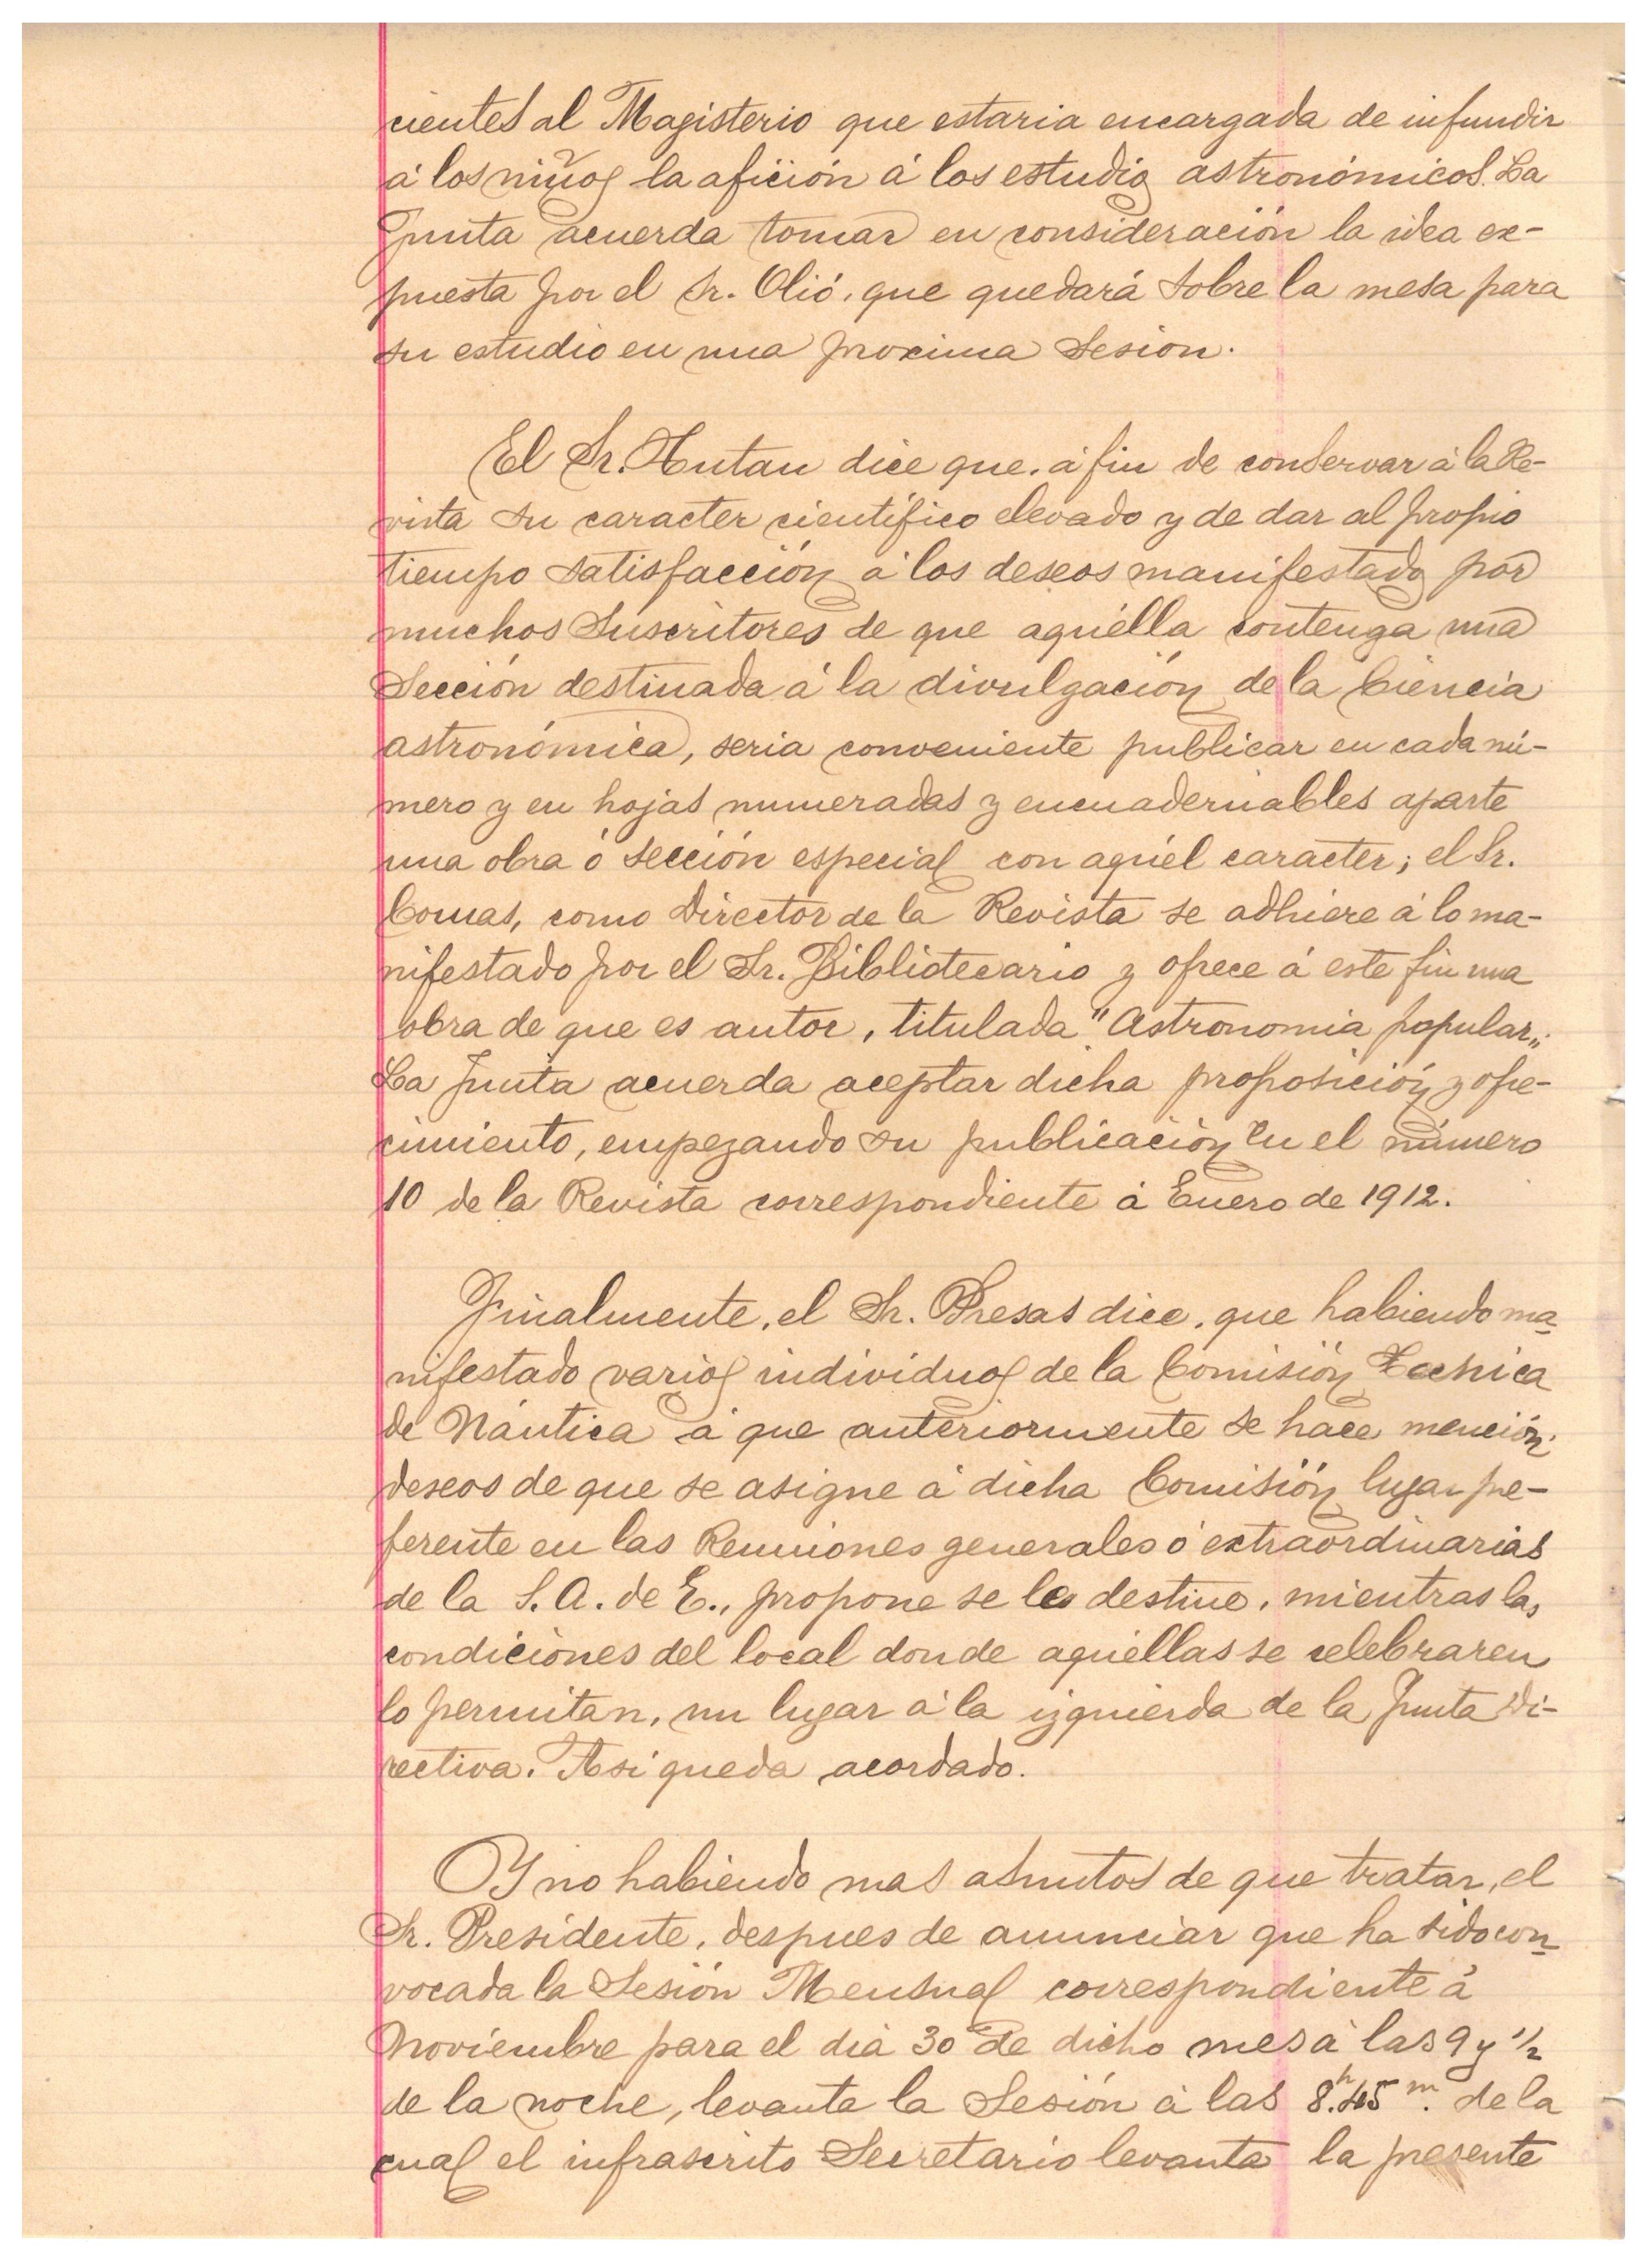 cientes al Magisterio que estaria encargada de infundir
á los niños la afición á los estudios astronómicos. La
Junta acuerda tomar en consideración la idea ex-
puesta por el Sr. Olió, que quedará sobre la mesa para
su estudio en una proxima Sesion.
El Sr. Hutan dice que, á fin de conservar á la Re-
vista su caracter científico elevado y de dar al propio
tiempo satisfacción á los deseos manifestados por
muchos Suscritores de que aquélla contenga una
Sección destinada á la divulgación de la Ciencia
astronómica, seria conveniente publicar en cada nú-
mero y en hojas numeradas y encuadernables aparte
una obra ó sección especial con aquél caracter; el Sr.
Comas, como Director de la Revista se adhiere á lo ma-
nifestado por el Sr. Bibliotecario y ofrece á este fin una
obra de que es autor, titulada "Astronomia popular„.
La Junta acuerda aceptar dicha proposición y ofre-
cimiento, empezando su publicación en el número
10 de la Revista correspondiente á Enero de 1912.
Finalmente, el Sr. Presas dice, que habiendo ma-
nifestado varios individuos de la Comisión Tecnica
de Náutica á que anteriormente se hace mención,
deseos de que se asigne á dicha Comisión lugar pre-
ferente en las Reuniones generales ó extraordinarias
de la S. A. de E., propone se les destine, mientras las
condiciones del local donde aquéllas se celebraren
lo permitan, un lugar á la izquierda de la Junta Di-
rectiva. Así queda acordado.
Y no habiendo mas asuntos de que tratar, el
Sr. Presidente, despues de anunciar que ha sido con-
vocada la Sesión Mensual correspondiente á
Noviembre para el dia 30 de dicho mes á las 9 y 1/2
de la noche, levanta la Sesión á las 8.h 45 m. de la
cual el infrascrito Secretario levanta la presente